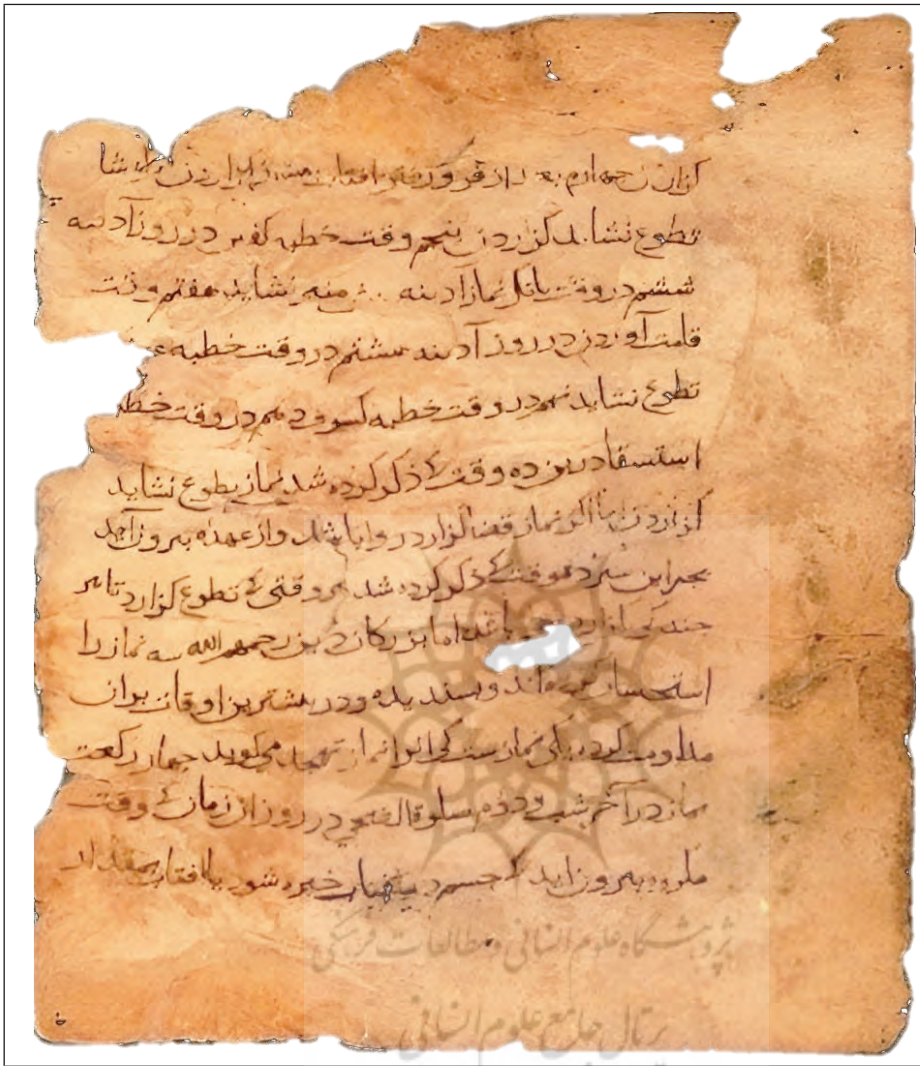 گزاردن چهارم بعد از فروگرفتن افتاب
تطوع نشاید گزاردن پنجم وقت خطبه گفتن در روز آدینه
ششم در وقت بانک نماز آدینه نشاید هفتم وقت
قامت آوردن در روز آدینه هشتم در وقت خطبه
تطوع نشاید نهم در وقت خطبه کسوف دهم در وقت خطبه
استسقا درین ده وقت کی ذکر کرده شد نماز تطوع نشاید
گزاردن اما اگر نماز قضا گزارد روا باشد و از عهده بیرون آید
بجز این ده وقت کی ذکر کرده شد هر وقتی کی تطوع گزارد تا هر
جند کی گزارد باشد اما بزرکان دین رحمهم الله سه نماز را
استحسان و بسندیده و در بیشترین اوقات بران
مداومت کرده یکی نمازست کی انرا نماز تهجد می‌گویند جهار رکعت
نماز در آخر شب و دوم صلوة الضحی در روز از زمان کی وقت
مکروه بیرون اید کی جسم در خیره شود یا افتاب بمقدار
پژوهشگاه علوم انسانی و مطالعات فرهنگی
پرتال جامع علوم انسانی